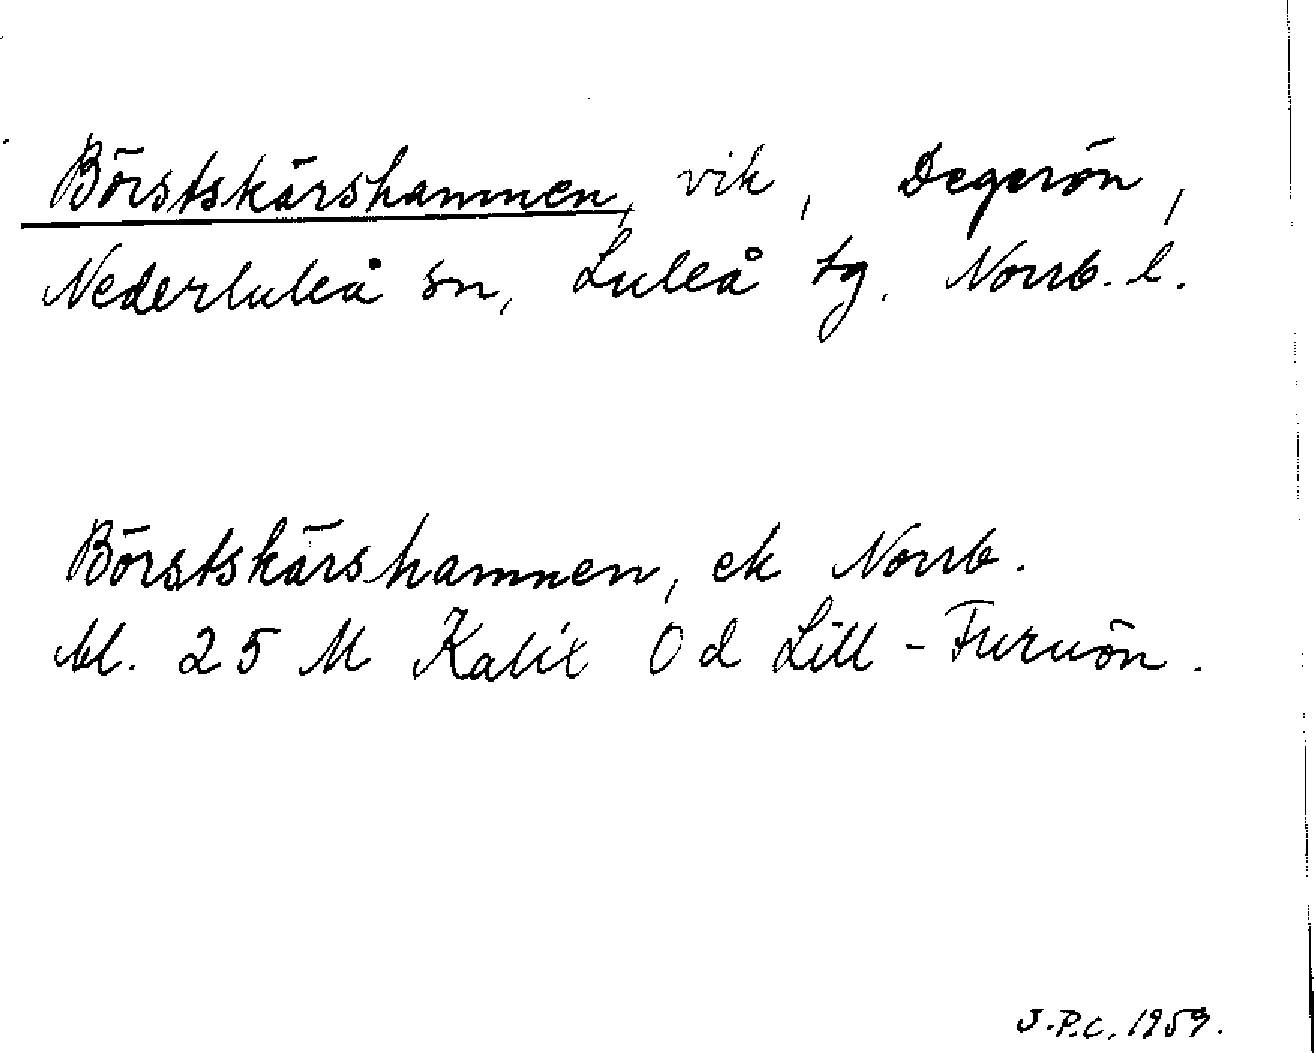 Börstskärshamnen, vik, Degerön,
Nederluleå sn, Luleå tg. Norrb. l.
Börstskärshamnen, ek Norrb.
bl. 25 M Kalix Od Lill-Furuön.
J.P.C. 1959.